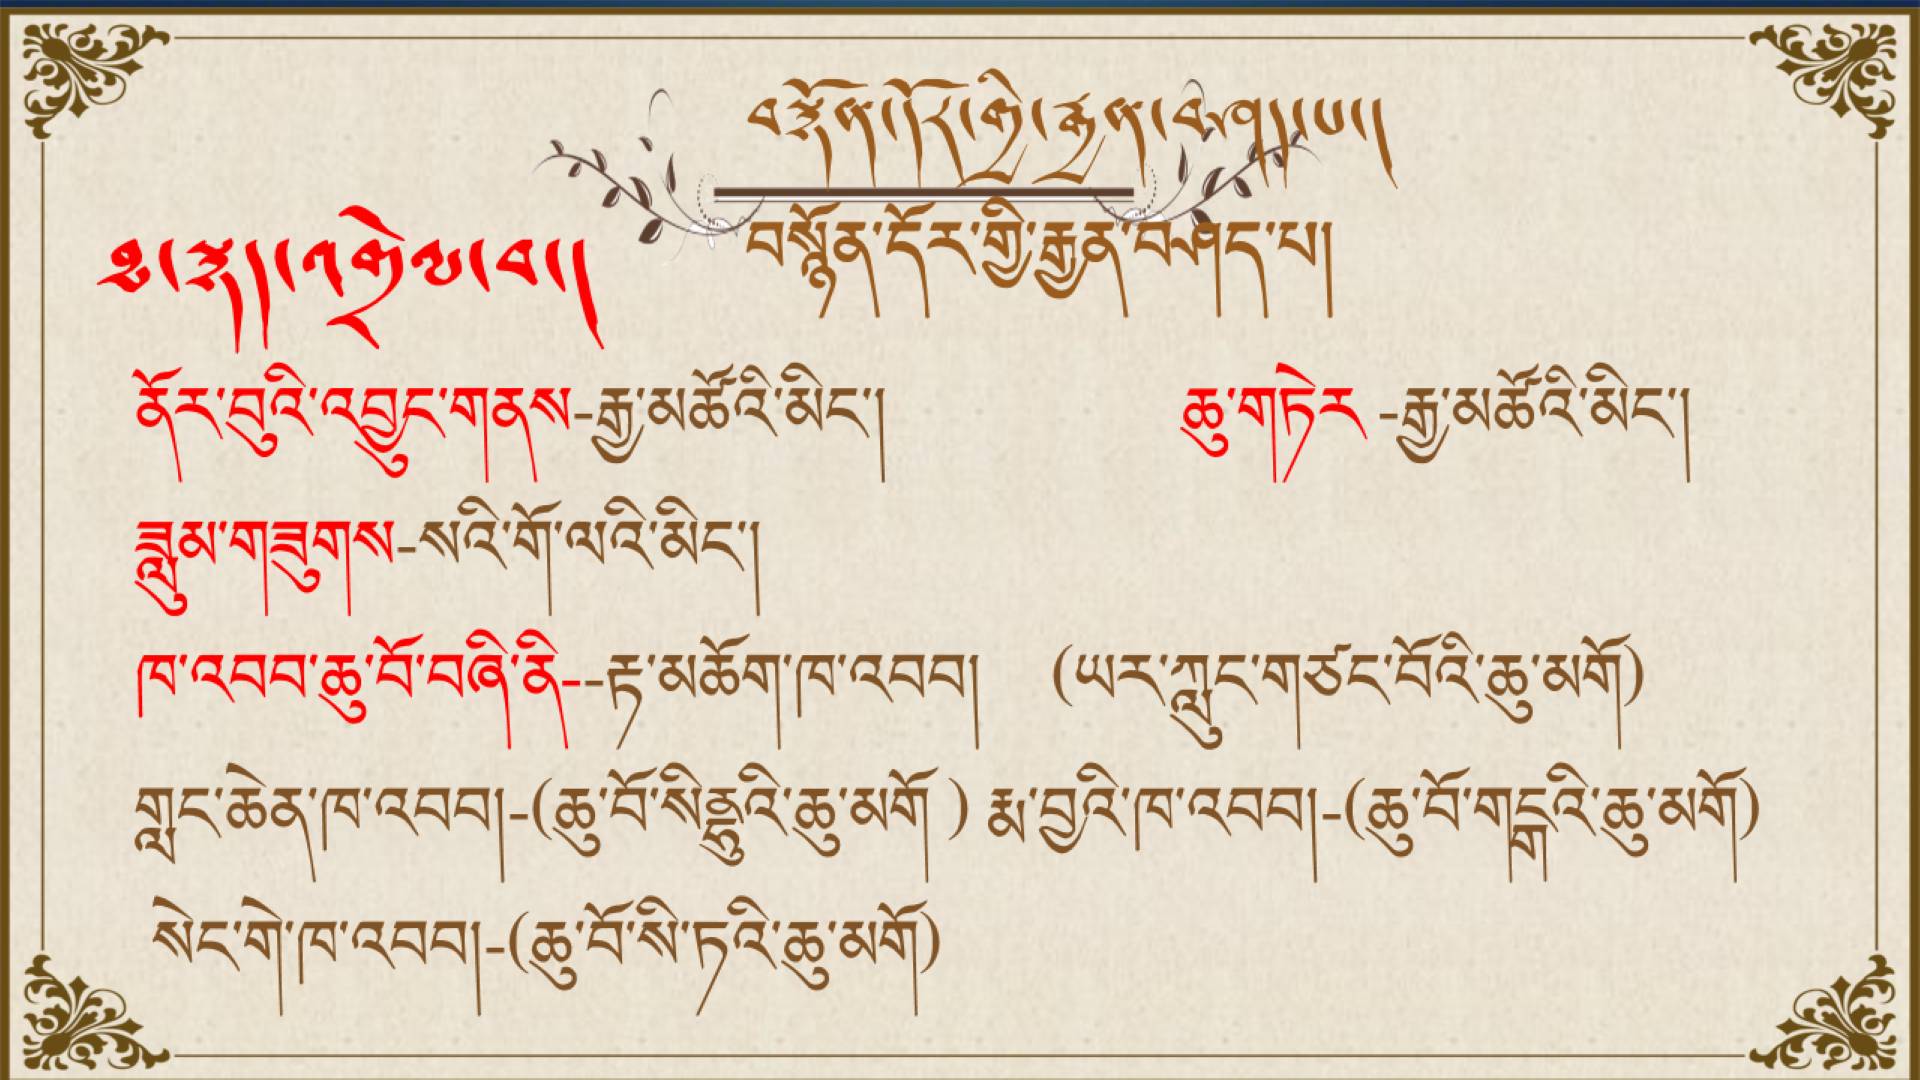 བསྙོན་དོར་གྱི་རྒྱན་བཤད་པ།
ནོར་བུའི་འབྱུང་གནས-རྒྱ་མཚོའི་མིང་། ཆུ་གཏེར -རྒྱ་མཚོའི་མིང་།
ཟླུམ་གཟུགས-སའི་གོ་ལའི་མིང་།
ཁ་འབབ་ཆུ་བོ་བཞི་ནི--རྟ་མཆོག་ཁ་འབབ། (ཡར་ཀླུང་གཙང་བོའི་ཆུ་མགོ)
གླང་ཆེན་ཁ་འབབ།-(ཆུ་བོ་སིནྡྷུའི་ཆུ་མགོ ) རྨ་བྱའི་ཁ་འབབ།-(ཆུ་བོ་གངྒའི་ཆུ་མགོ)
སེང་གེ་ཁ་འབབ།-(ཆུ་བོ་སི་ཏའི་ཆུ་མགོ)